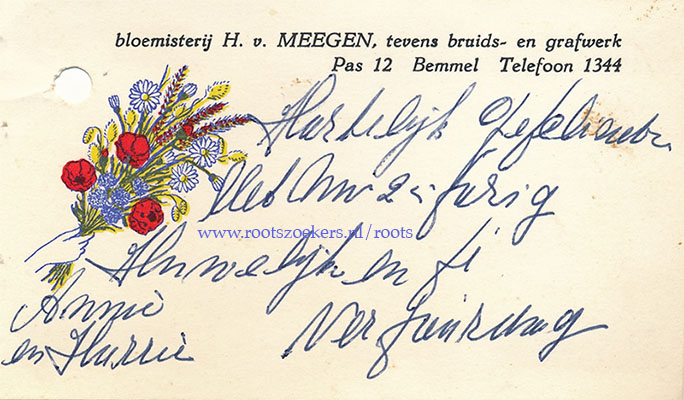 bloemisterij H. v. MEEGEN, tevens bruids- en grafwerk
Pas 12 Bemmel Telefoon 1344
Hartelijk Gefeliciteer
Met Uw 25 jarig
www.rootszoekers.nl/roots
Huwelijk en je
Verjaardag
Annie
en Harrie